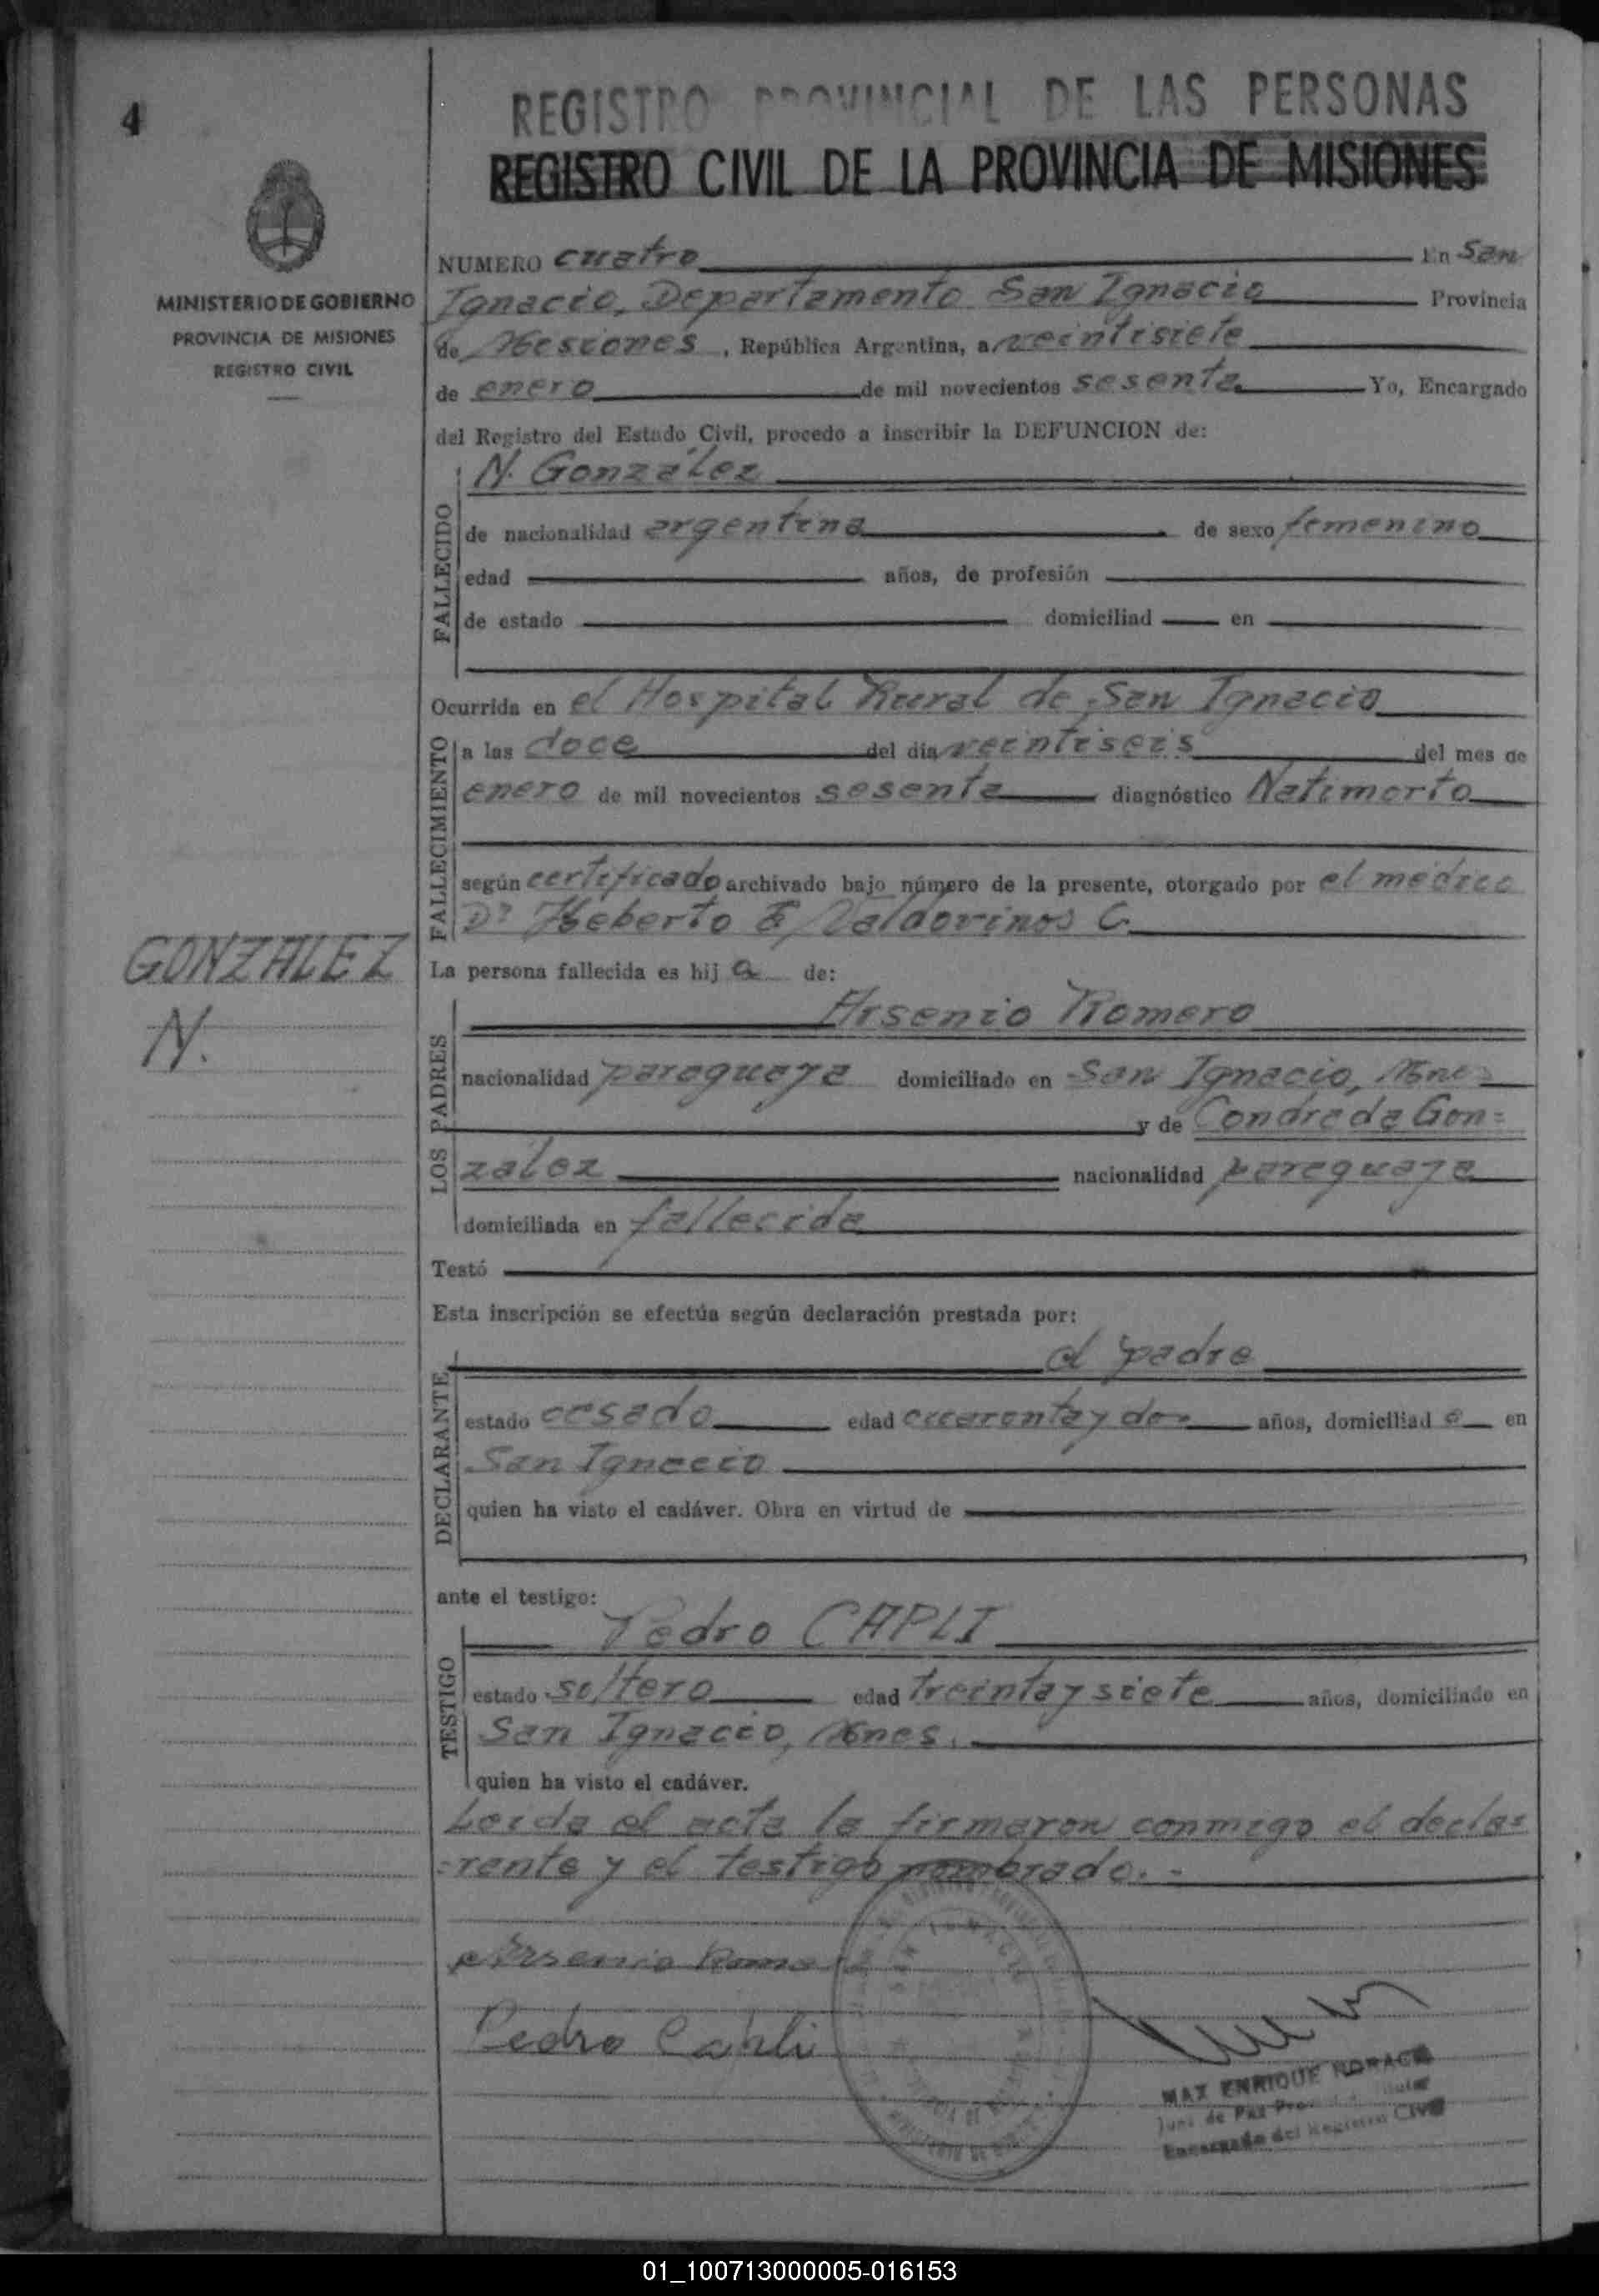 4
REGISTRO PROVINCIAL DE LAS PERSONAS
REGISTRO CIVIL DE LA PROVINCIA DE MISIONES
MINISTERIO DE GOBIERNO
PROVINCIA DE MISIONES
REGISTRO CIVIL
NUMERO cuatro En San
Ignacio, Departamento San Ignacio Provincia
de Misiones, República Argentina, a veintisiete
de enero de mil novecientos sesenta Yo, Encargado
del Registro del Estado Civil, procedo a inscribir la DEFUNCION de:
FALLECIDO
N. González
de nacionalidad argentina de sexo femenino
edad años, de profesión
de estado domiciliad en
Ocurrida en el Hospital Rural de San Ignacio
FALLECIMIENTO
a las doce del día veintiseis del mes de
enero de mil novecientos sesenta diagnóstico Natimorto
según certificado archivado bajo número de la presente, otorgado por el médico
Dr Heberto E, Valdovinos C.
GONZALEZ
N.
La persona fallecida es hij a de:
LOS PADRES
Arsenio Romero
nacionalidad paraguaya domiciliado en San Ignacio, Mnes
y de Condreda Gon=
zalez nacionalidad paraguaya
domiciliada en fallecida
Testó
Esta inscripción se efectúa según declaración prestada por:
DECLARANTE
el padre
estado casado edad cuarenta y dos años, domiciliad o en
San Ignacio
quien ha visto el cadáver. Obra en virtud de
ante el testigo:
TESTIGO
Pedro CAPLI
estado soltero edad treinta y siete años, domiciliado en
San Ignacio, Mnes.
quien ha visto el cadáver.
Leida el acta la firmaron conmigo el decla=
=rante y el testigo nombrado.-
Arsenio Romero
Pedro Capli
MAX ENRIQUE
Juez de Paz
Encargado del Registro Civil
01_100713000005-016153